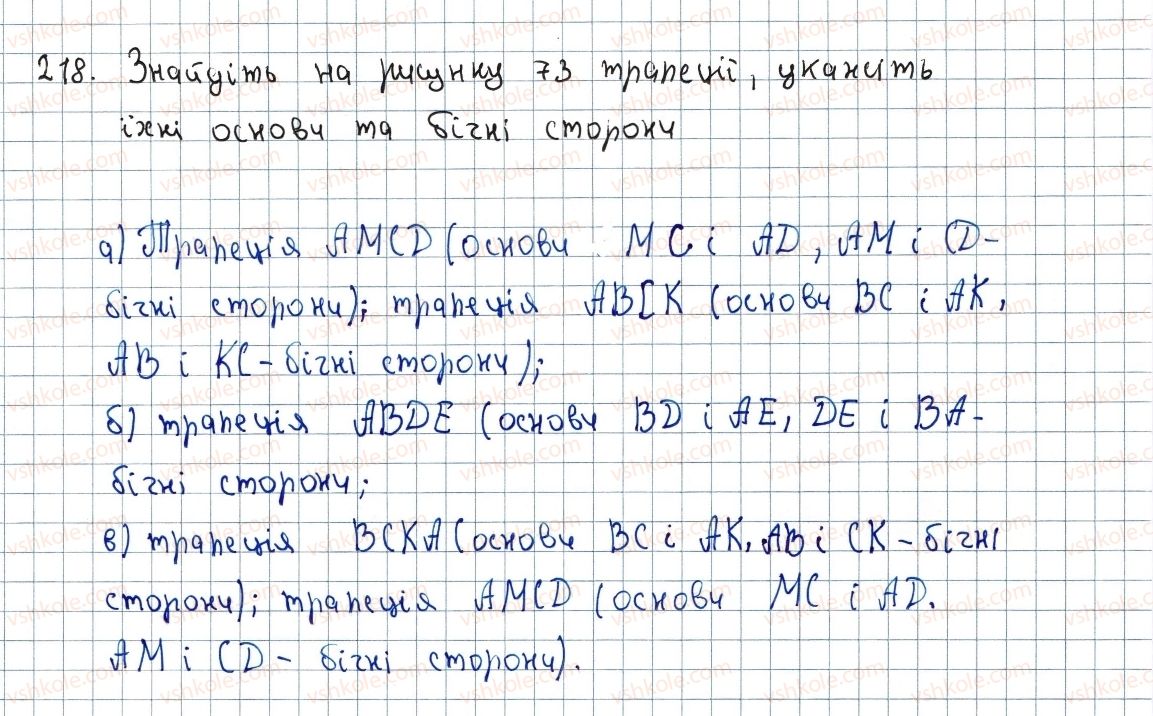 218. Знайдіть на рисунку 73 трапеції, укажіть
їхні основи та бічні сторони
а) Трапеція AMCD (основи MC і AD, AM і CD-
бічні сторони); трапеція ABCK (основи BC і AK,
AB і KC - бічні сторони);
б) трапеція ABDE (основи BD і AE, DE і BA-
бічні сторони;
в) трапеція BCKA (основи BC і AK, AB і CK - бічні
сторони); трапеція AMCD (основи MC і AD.
AM і CD - бічні сторони).